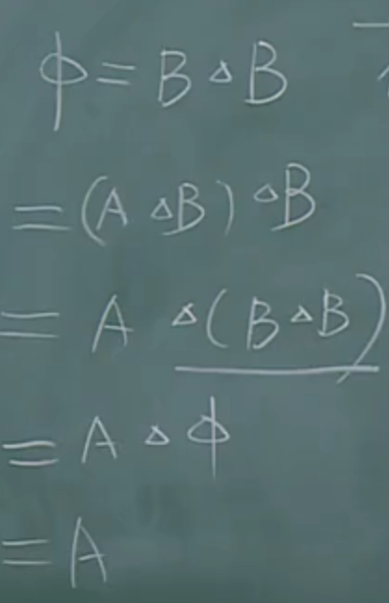 ϕ = B △ B
= (A △ B) △ B
= A △ (B △ B)
= A △ ϕ
= A